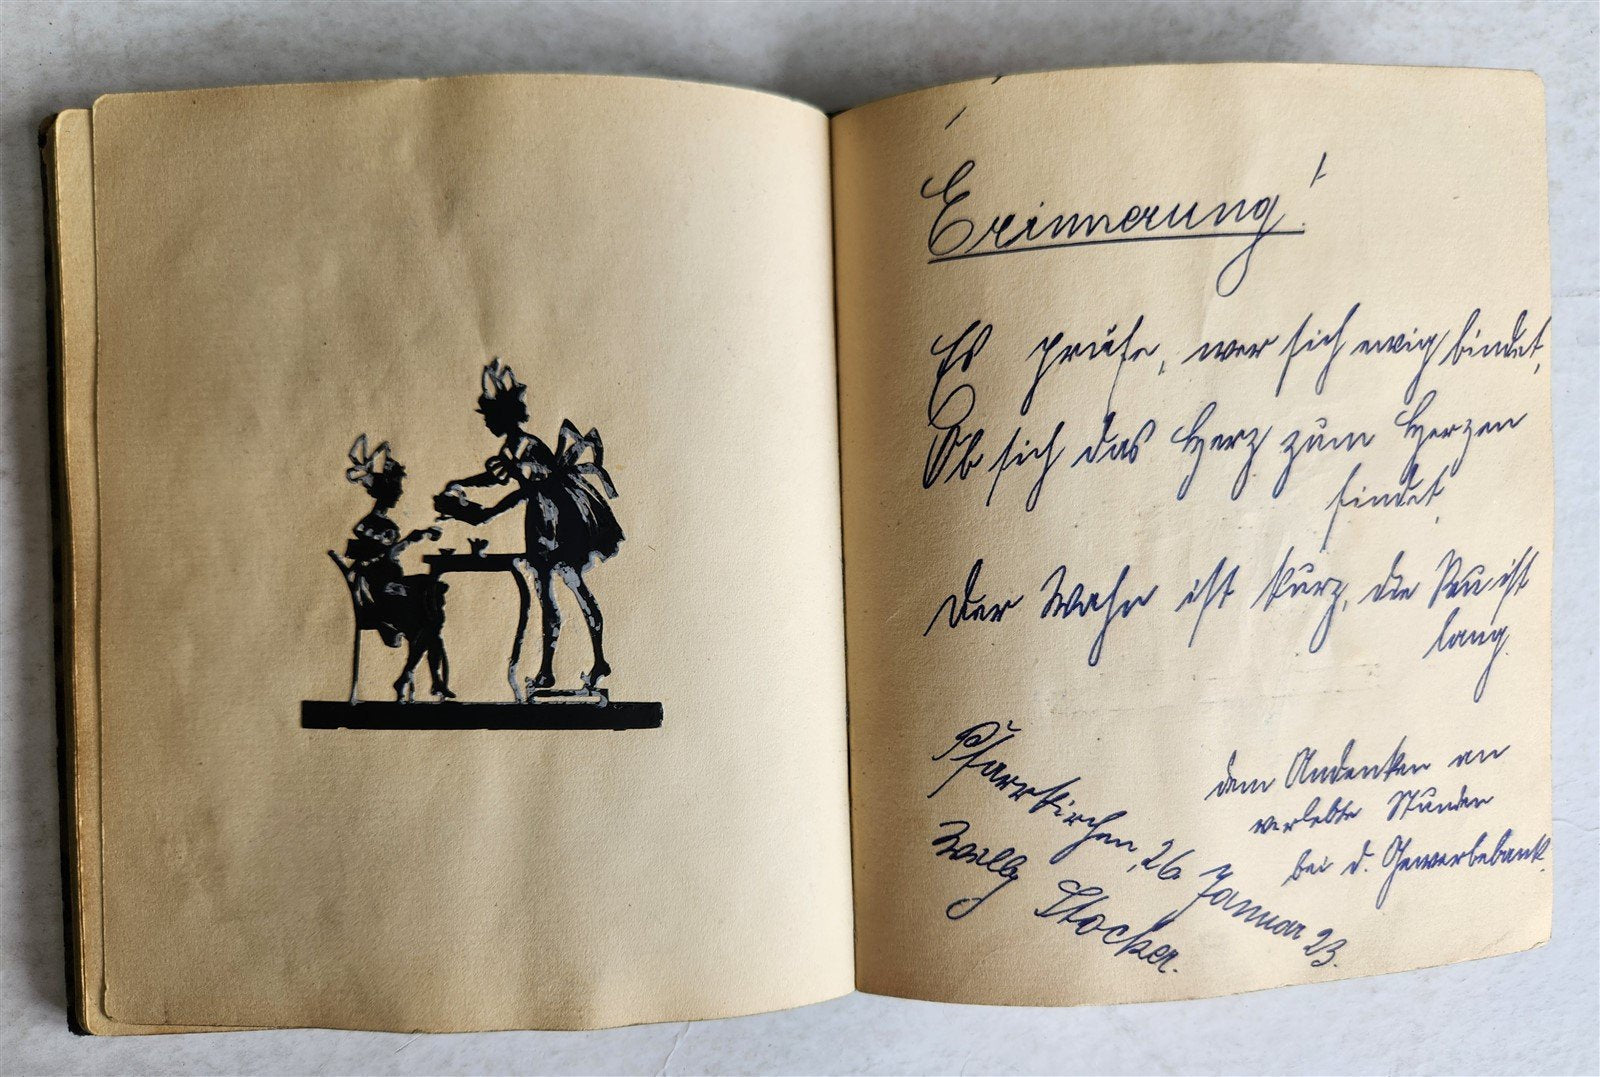 Erinnerung!
Es prüfe, wer sich ewig bindet,
Ob sich das Herz zum Herzen
findet,
Der Wahn ist kurz, die Reu ist
lang.
Pfarrkirchen, 26. Januar 23.
Willy Stocker.
dem Andenken an
verlebte Stunden
bei d. Gewerbebank.